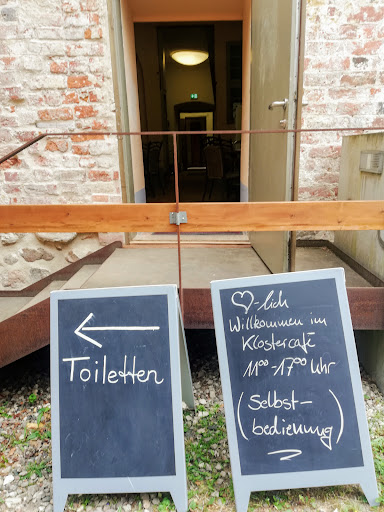 ←
Toiletten
♡-lich
Willkommen im
Klostercafé
11⁰⁰-17⁰⁰ Uhr
(Selbst-
bedienung)